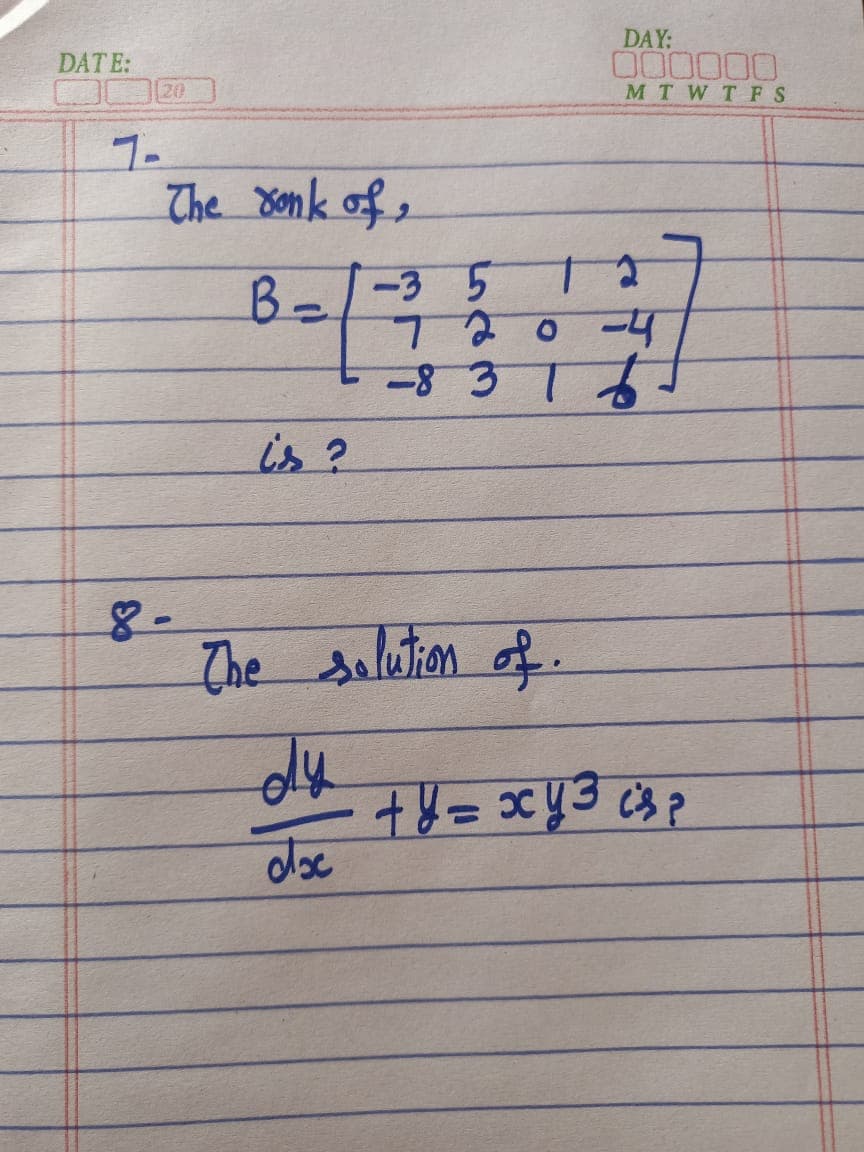 DATE:
20
DAY:
M T W T F S
7-
The rank of,
B = [ -3 5 1 2
7 2 0 -4
-8 3 1 6 ]
is ?
8-
The solution of.
dy
+ y = xy3 is?
dx